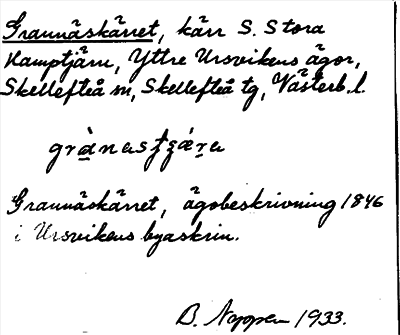 Grannäskärret, kärr S. Stora
Kamptjärn, Yttre Ursvikens ägor,
Skellefteå sn, Skellefteå tg, Västerb. l.
Grannäskärret, ägobeskrivning 1846
i Ursvikens byaskrin.
B. 1933.